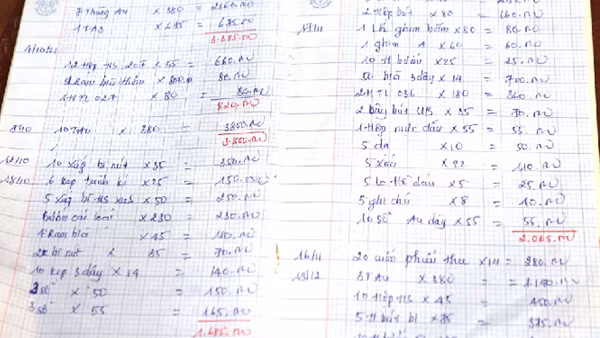 7 Thùng Au × 380 = 2660.000
1 TA3 × 675 = 675.000
3.335.000
4/10/21
12 Hộp HS 207 × 55 = 660.000
1 Ram bìa thơm = 80.000
1 HTL 027 × 80 = 80.000
820.000
10 TAU × 380 = 3800.000
3.800.000
10 xấp bì nút × 35 = 350.000
6 kẹp trình kí × 25 = 150.000
5 xấp bì HS × 50 = 250.000
Buồm các loại × 230 = 230.000
4 Ram bìa × 45 = 180.000
2 bì nút × 35 = 70.000
10 kẹp 3 dây × 14 = 140.000
3 số × 50 = 150.000
3 số × 55 = 165.000
1.685.000
2 Hộp bút × 80 = 160.000
1 Lố ghim bấm × 80 = 80.000
1 ghim A × 60 = 60.000
10 H bấm × 25 = 25.000
50 bìa 3 dây × 14 = 700.000
2 HTL 036 × 180 = 360.000
2 bây bút UB × 35 = 70.000
1 Hộp mực dấu × 55 = 55.000
5 da × 10 = 50.000
5 xóa × 22 = 110.000
5 × 5 = 25.000
5 ghi chú × 8 = 40.000
10 Số Au dây × 55 = 55.000
2.065.000
16/11 20 cuốn phiếu thu × 14 = 280.000
13/12 3 TAu × 380 = 1.140.000
10 Hộp HS × 45 = 450.000
5 H bút bi × 75 = 375.000